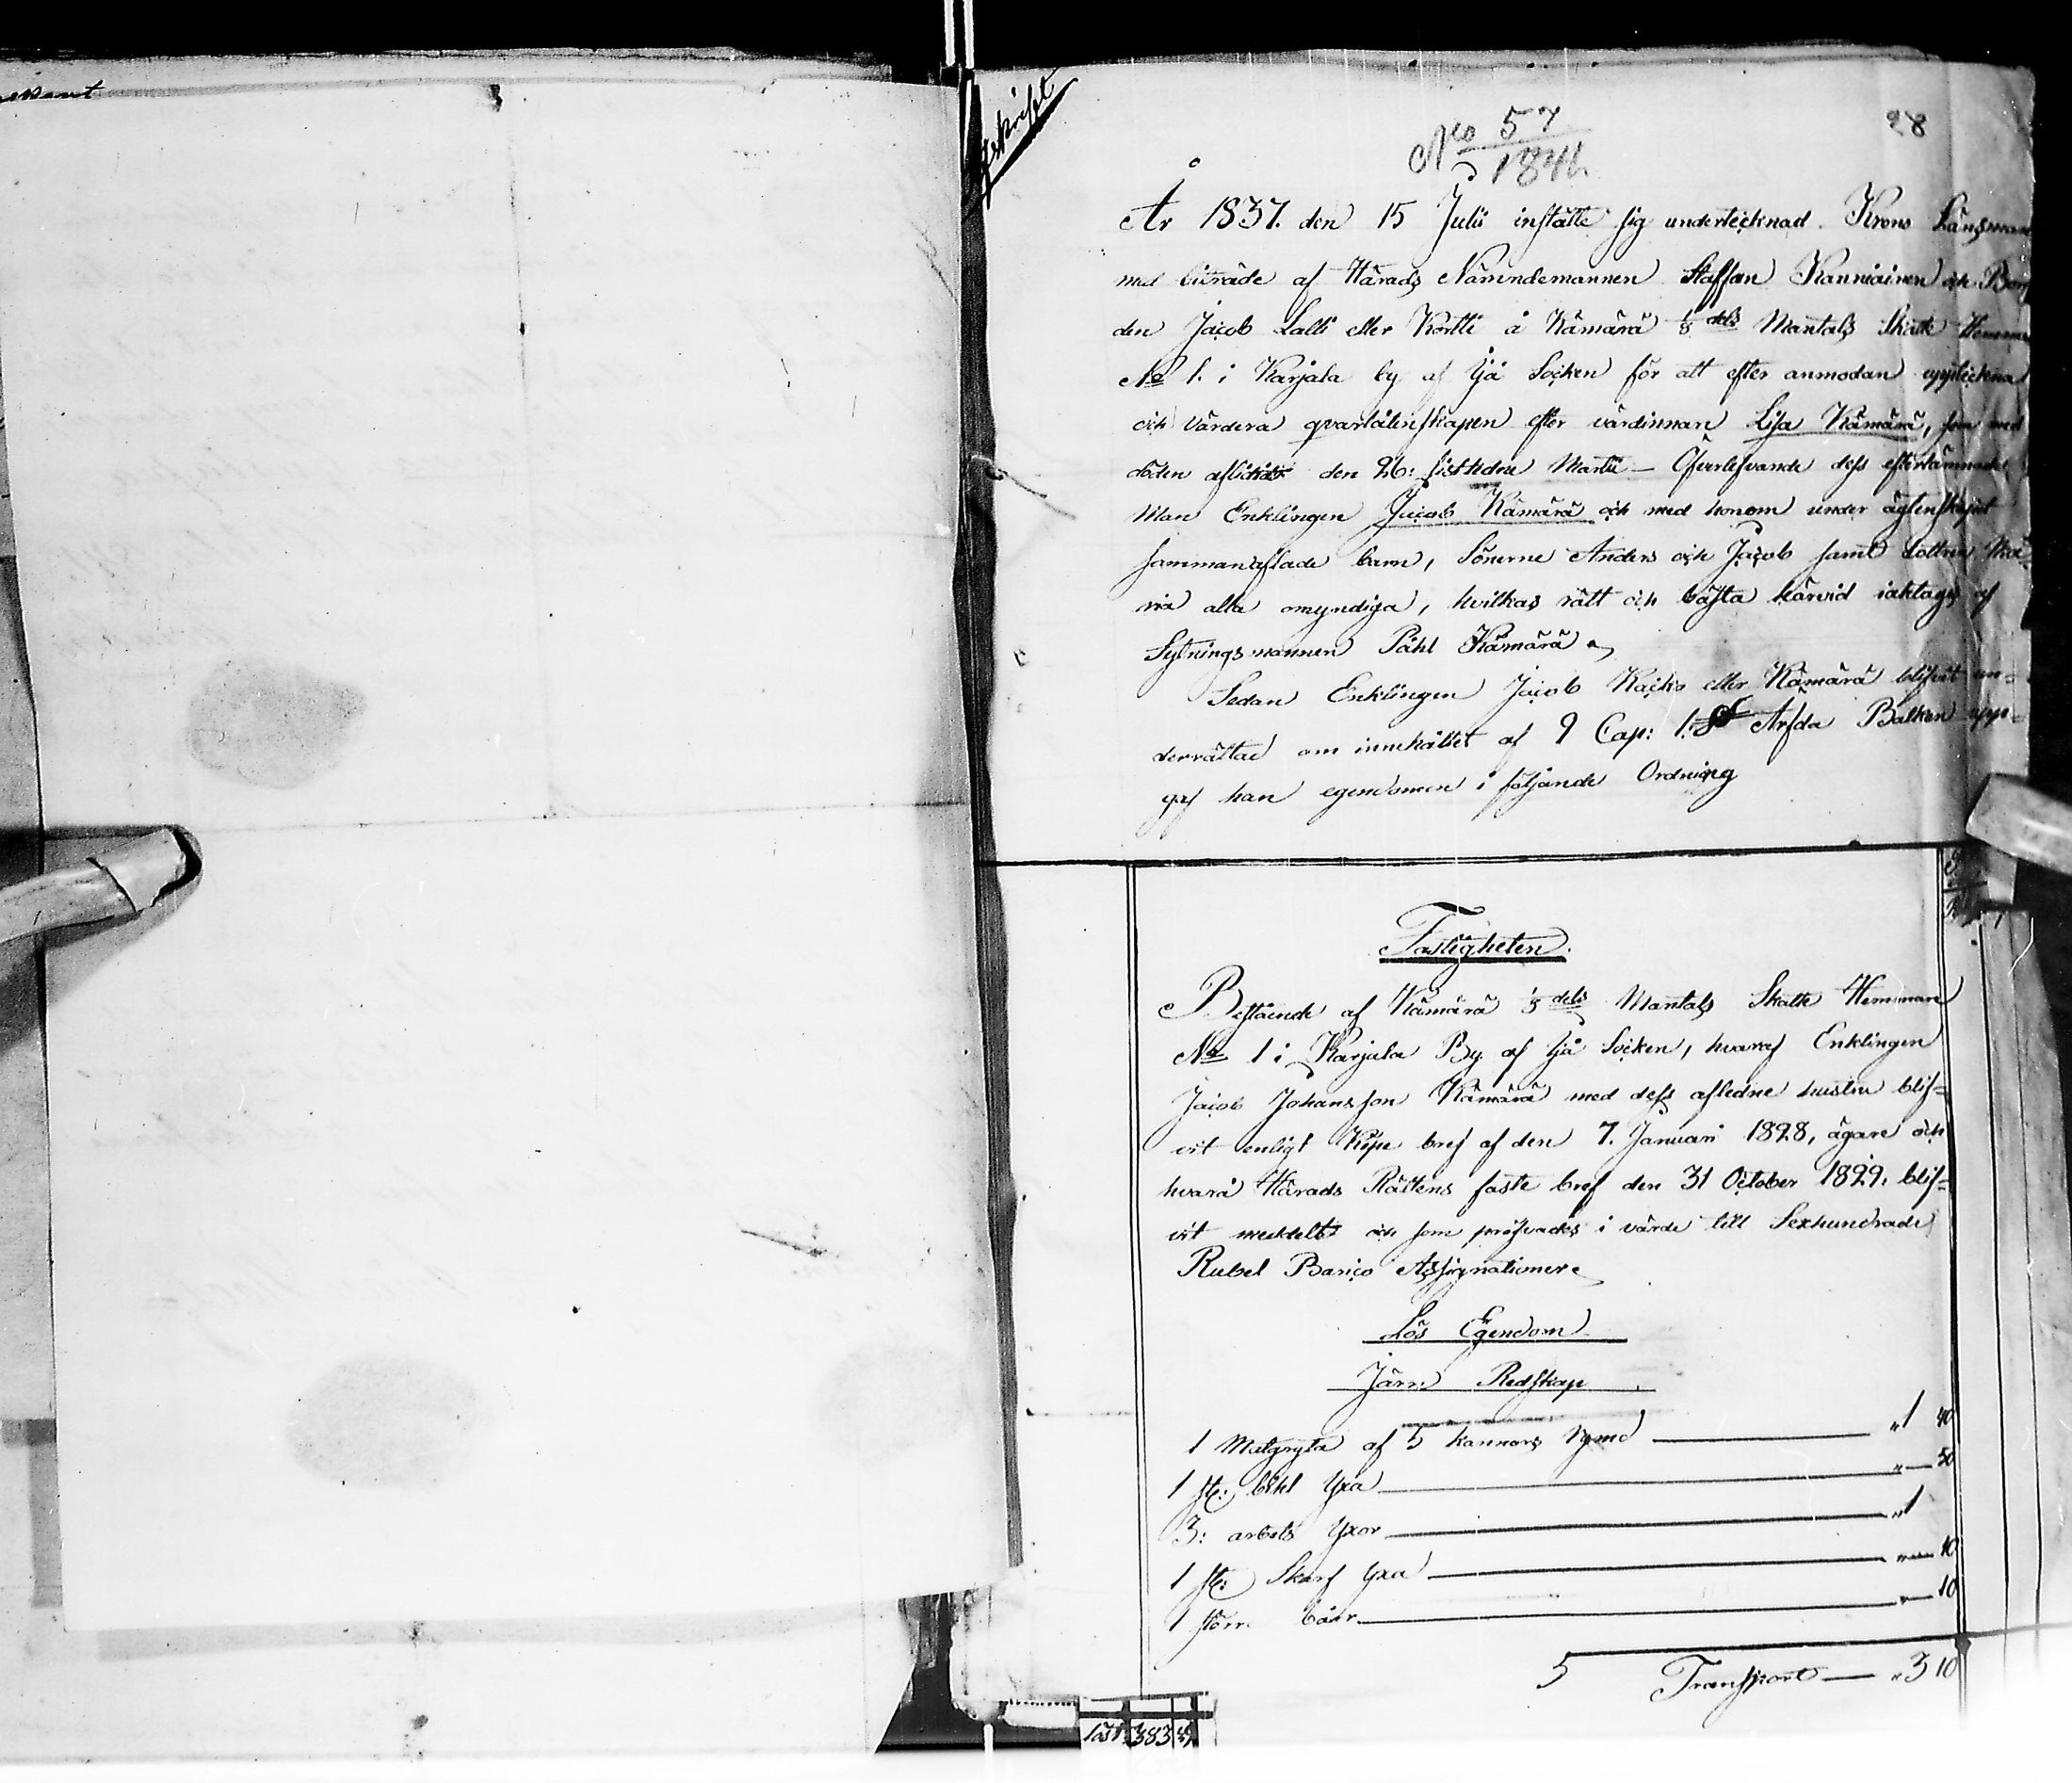 Afskrift
28
No 57
1841.
År 1837. den 15 Julii instälte sig undertecknad Krono Länsman
med biträde af Härads Nämndemannen Staffan Kanniainen och Bon
den Jacob Lalli eller Kortti å Kämärä 1/8 dels Mantals Skatte Hemman
No 1. i Karjala by af Ijå Socken för att efter anmodan uppteckna
och värdera qvarlåtenskapen efter värdinnan Lisa Kämärä, som med
döden aflidit den 26: sistledne Martii – Öfverlefvande dess efterlämnade
Man Enklingen Jacob Kämärä och med honom under ägtenskapet
sammanaflade barn, Sönerne Anders och Jacob samt dottren Ma
ria alla omyndiga, hvilkas rätt och bästa härvid iaktags af
Sytningsmannen Påhl Kämärä
Sedan Enklingen Jacob Kaicko eller Kämärä blifvit un=
derrättad om innehållet af 9 Cap: 1. § Ärfda Balken upp=
gaf han egendomen i följande Ordning
Fastigheten.
Bestående af Kämärä 1/8 dels Mantals Skatte Hemman
No 1 i Karjala By af Ijå Socken, hvaraf Enklingen
Jacob Johansson Kämärä med dess aflidne hustru blif=
vit enligt Köpe bref af den 7. Januari 1828, ägare och
hvarå Härads Rättens faste bref den 31 October 1829. blif=
vit meddelt och som pröfvades i värde till Sexhundrade
Rubel Banco Assignationer
Lös Egendom
Järn Redskap
1 Matgryta af 5 kannors rymd — " 1 40
1 st: bihl Yxa — " — 50
3: arbets Yxor — " 1
1 st: Skarf yxa — " — 10
1 störr. båhr — " — 10
5 Transport — " 3 10